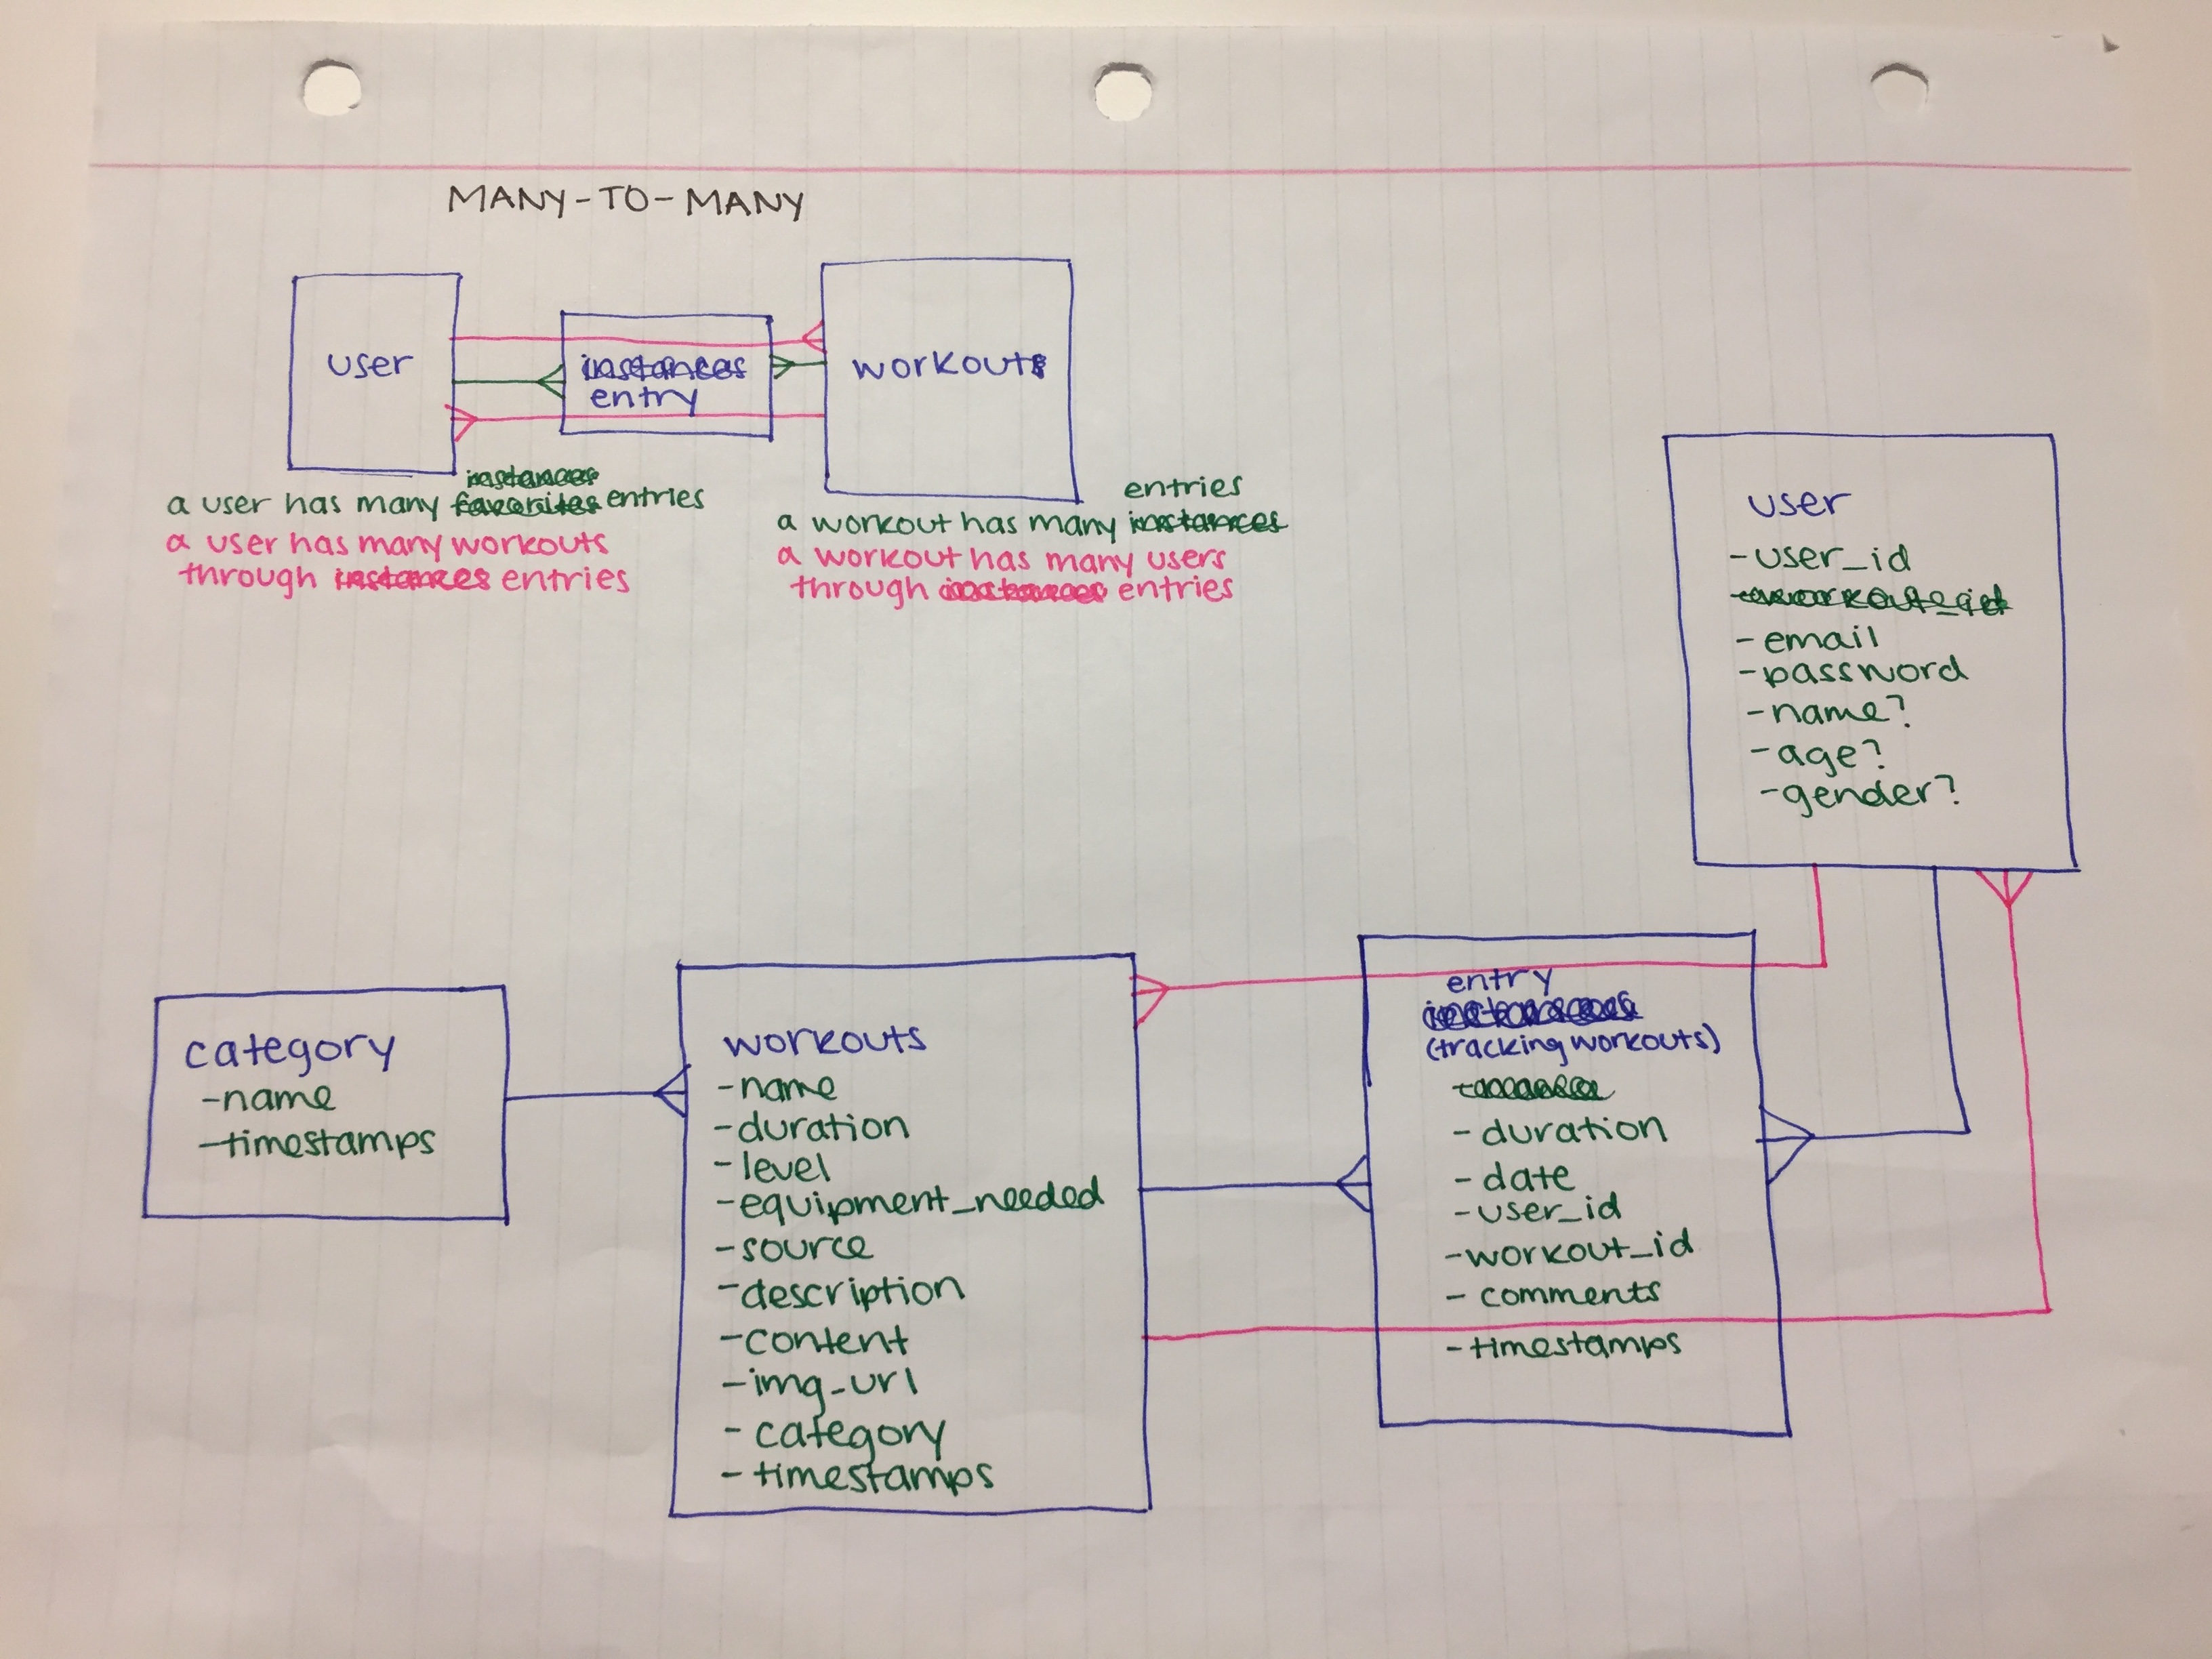 MANY-TO-MANY
user
instances
entry
workouts
instances
a user has many favorites entries
a user has many workouts
through instances entries
entries
a workout has many instances
a workout has many users
through instances entries
user
-user_id
-workout_id
-email
-password
-name?
-age?
-gender?
category
-name
-timestamps
workouts
-name
-duration
-level
-equipment_needed
-source
-description
-content
-img_url
-category
-timestamps
entry
instances
(tracking workouts)
-duration
-date
-user_id
-workout_id
-comments
-timestamps